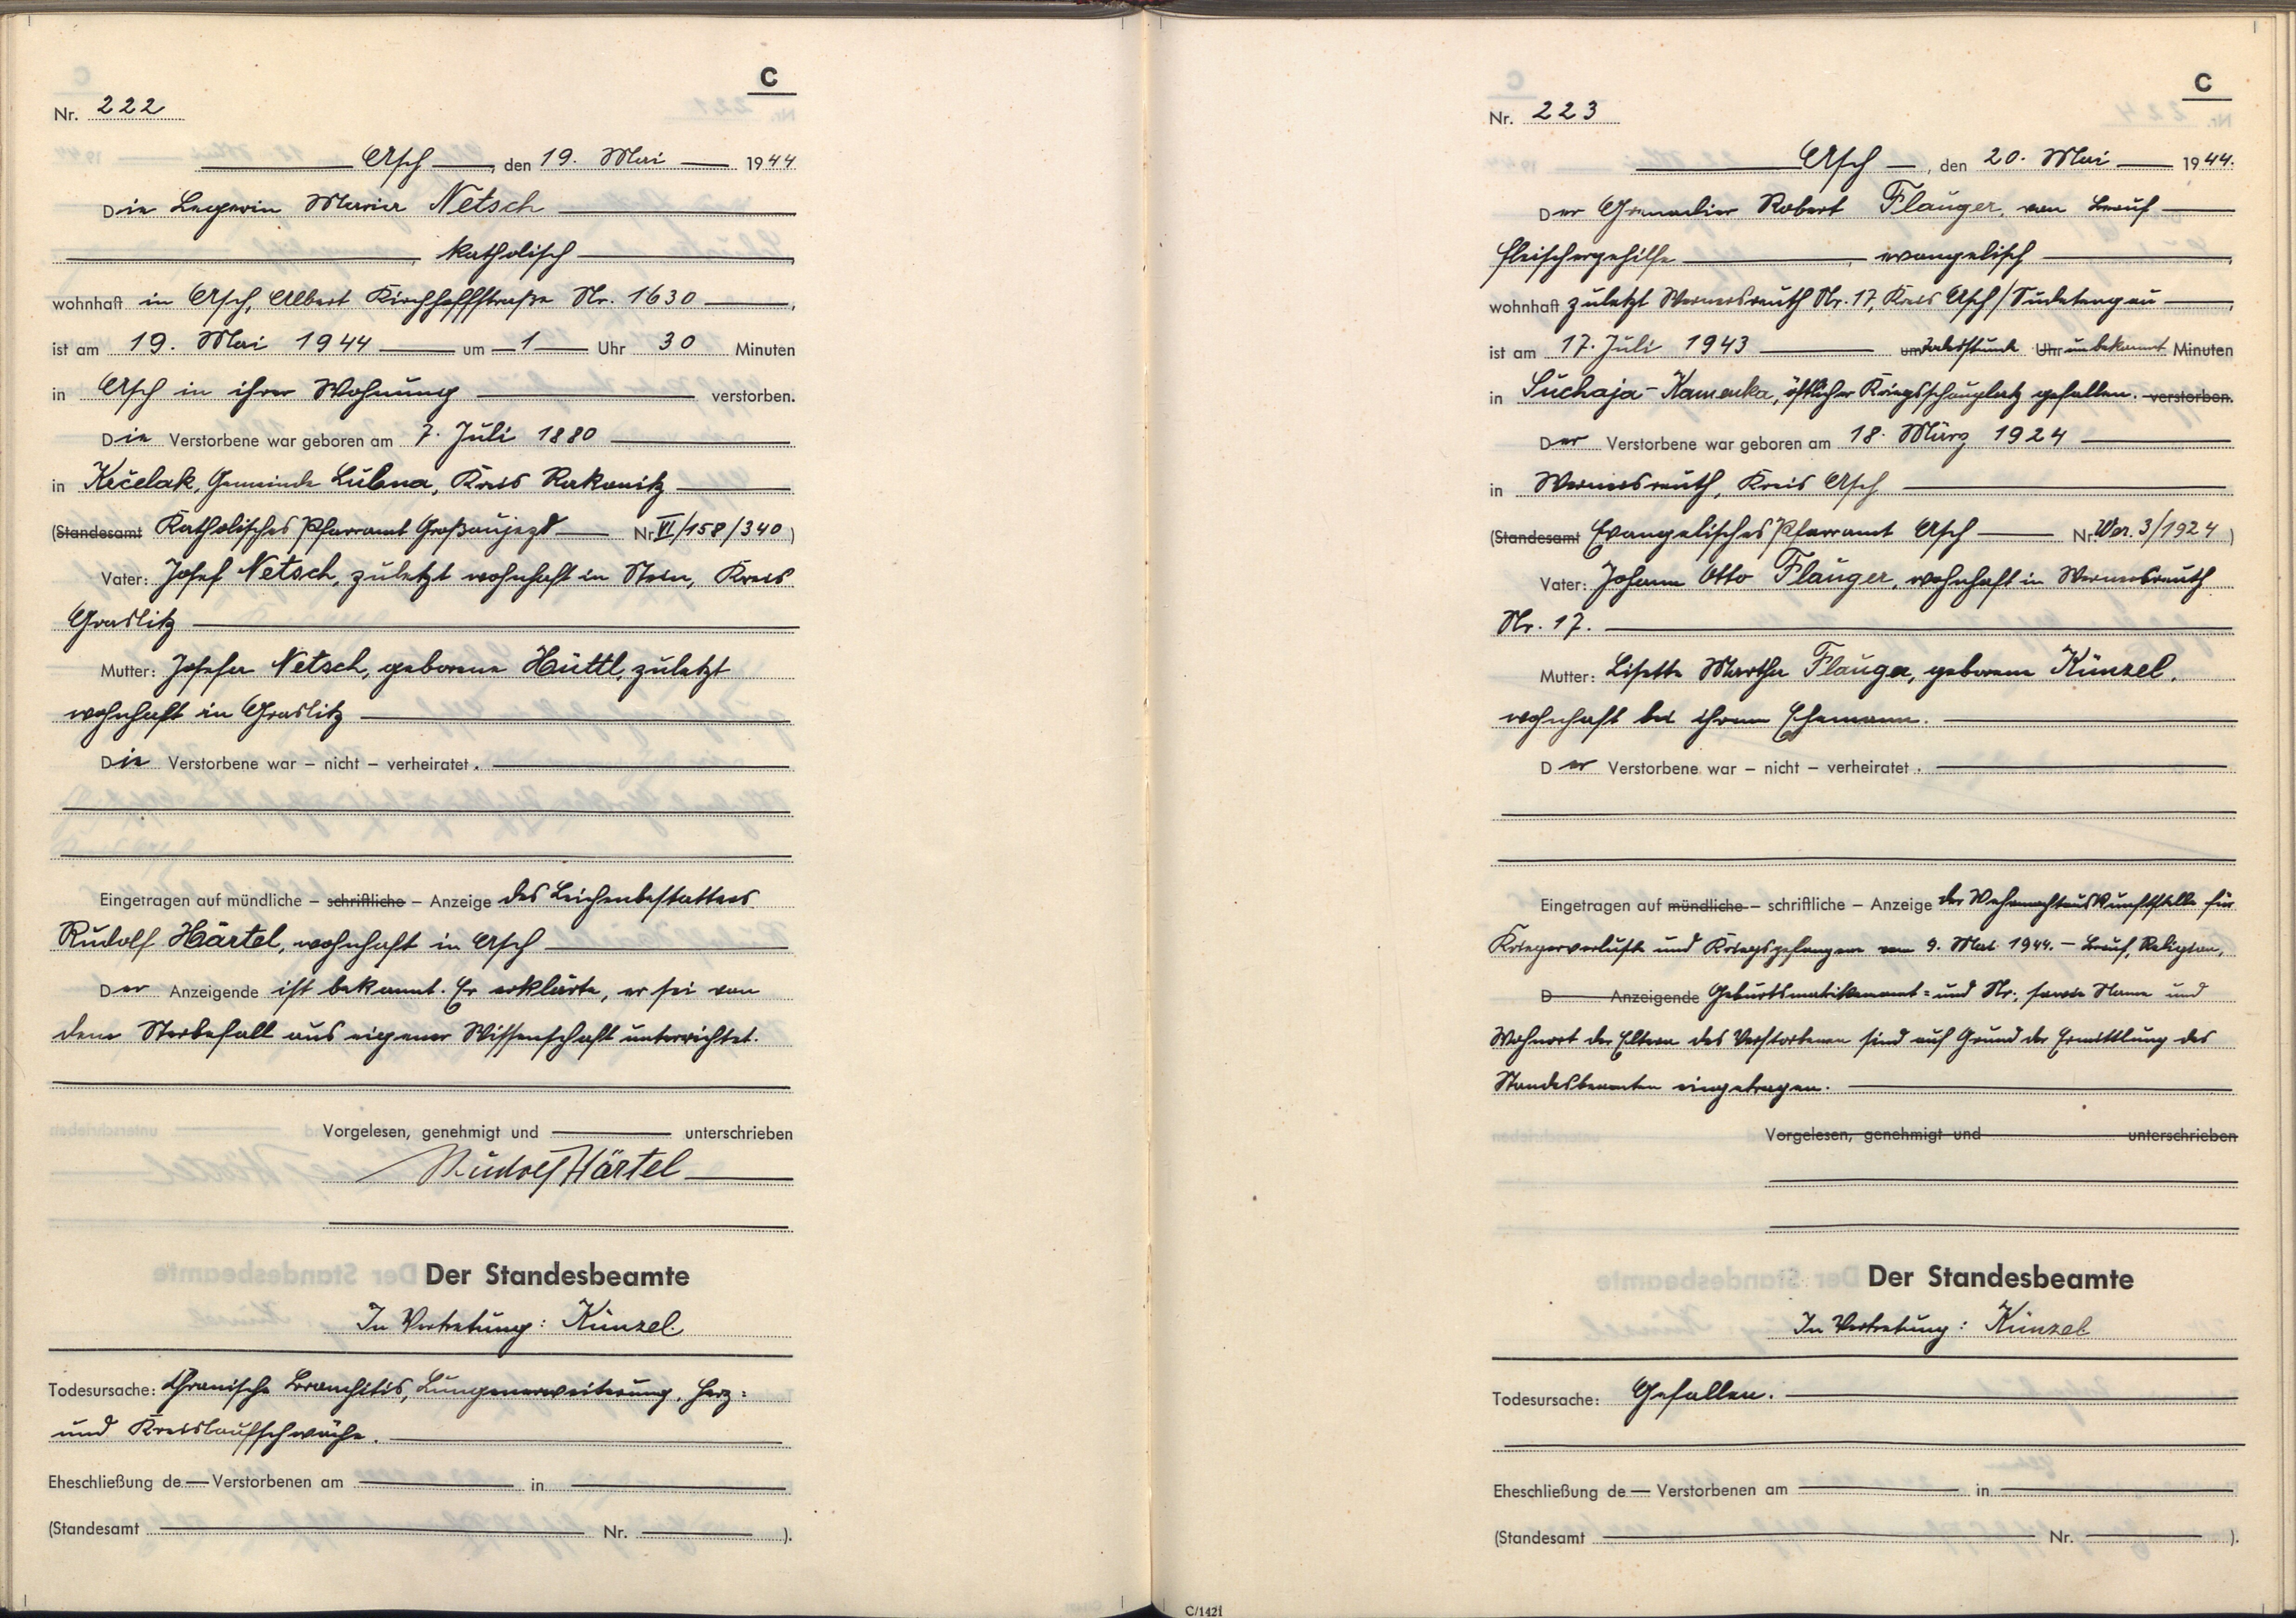 C
Nr. 222
Asch, den 19. Mai 1944
Die Legerin Maria Netsch
, katholisch,
wohnhaft in Asch, Albert Kirchhoffstraße Nr. 1630,
ist am 19. Mai 1944 um 1 Uhr 30 Minuten
in Asch in ihrer Wohnung verstorben.
Die Verstorbene war geboren am 7. Juli 1880
in Kečelak, Gemeinde Lubna, Kreis Rakonitz
(Standesamt Katholisches Pfarramt Großaujezd Nr. VI/158/340)
Vater: Josef Netsch, zuletzt wohnhaft in Stein, Kreis
Graslitz
Mutter: Josefa Netsch, geborene Hüttl, zuletzt
wohnhaft in Graslitz
Die Verstorbene war – nicht – verheiratet.
Eingetragen auf mündliche – schriftliche – Anzeige des Leichenbestatters
Rudolf Härtel, wohnhaft in Asch
Der Anzeigende ist bekannt. Er erklärte, er sei von
dem Sterbefall aus eigener Wissenschaft unterrichtet.
Vorgelesen, genehmigt und unterschrieben
Rudolf Härtel
Der Standesbeamte
In Vertretung: Künzel.
Todesursache: Chronische Bronchitis, Lungenerweiterung, Herz=
und Kreislaufschwäche.
Eheschließung de Verstorbenen am in
(Standesamt Nr. ).
C
Nr. 223
Asch, den 20. Mai 1944.
Der Grenadier Robert Flauger, von Beruf
Fleischergehilfe, evangelisch,
wohnhaft zuletzt Wernersreuth Nr. 17, Kreis Asch/Sudetengau,
ist am 17. Juli 1943 um Todesstunde Uhr unbekannt Minuten
in Suchaja-Kamenka, östlicher Kriegsschauplatz gefallen. verstorben.
Der Verstorbene war geboren am 18. März 1924
in Wernersreuth, Kreis Asch
(Standesamt Evangelisches Pfarramt Asch Nr. Wer. 3/1924)
Vater: Johann Otto Flauger, wohnhaft in Wernersreuth
Nr. 17.
Mutter: Lisette Martha Flauger, geborene Künzel,
wohnhaft bei ihrem Ehemann.
Der Verstorbene war – nicht – verheiratet.
Eingetragen auf mündliche – schriftliche – Anzeige der Wehrmachtauskunftstelle für
Kriegerverluste und Kriegsgefangene vom 9. Mai 1944. – Beruf, Religion,
D Anzeigende Geburtsmatrikenamt= und Nr. sowie Name und
Wohnort der Eltern des Verstorbenen sind auf Grund der Ermittlung des
Standesbeamten eingetragen.
Vorgelesen, genehmigt und unterschrieben
Der Standesbeamte
In Vertretung: Künzel
Todesursache: Gefallen.
Eheschließung de Verstorbenen am in
(Standesamt Nr. ).
C/1421